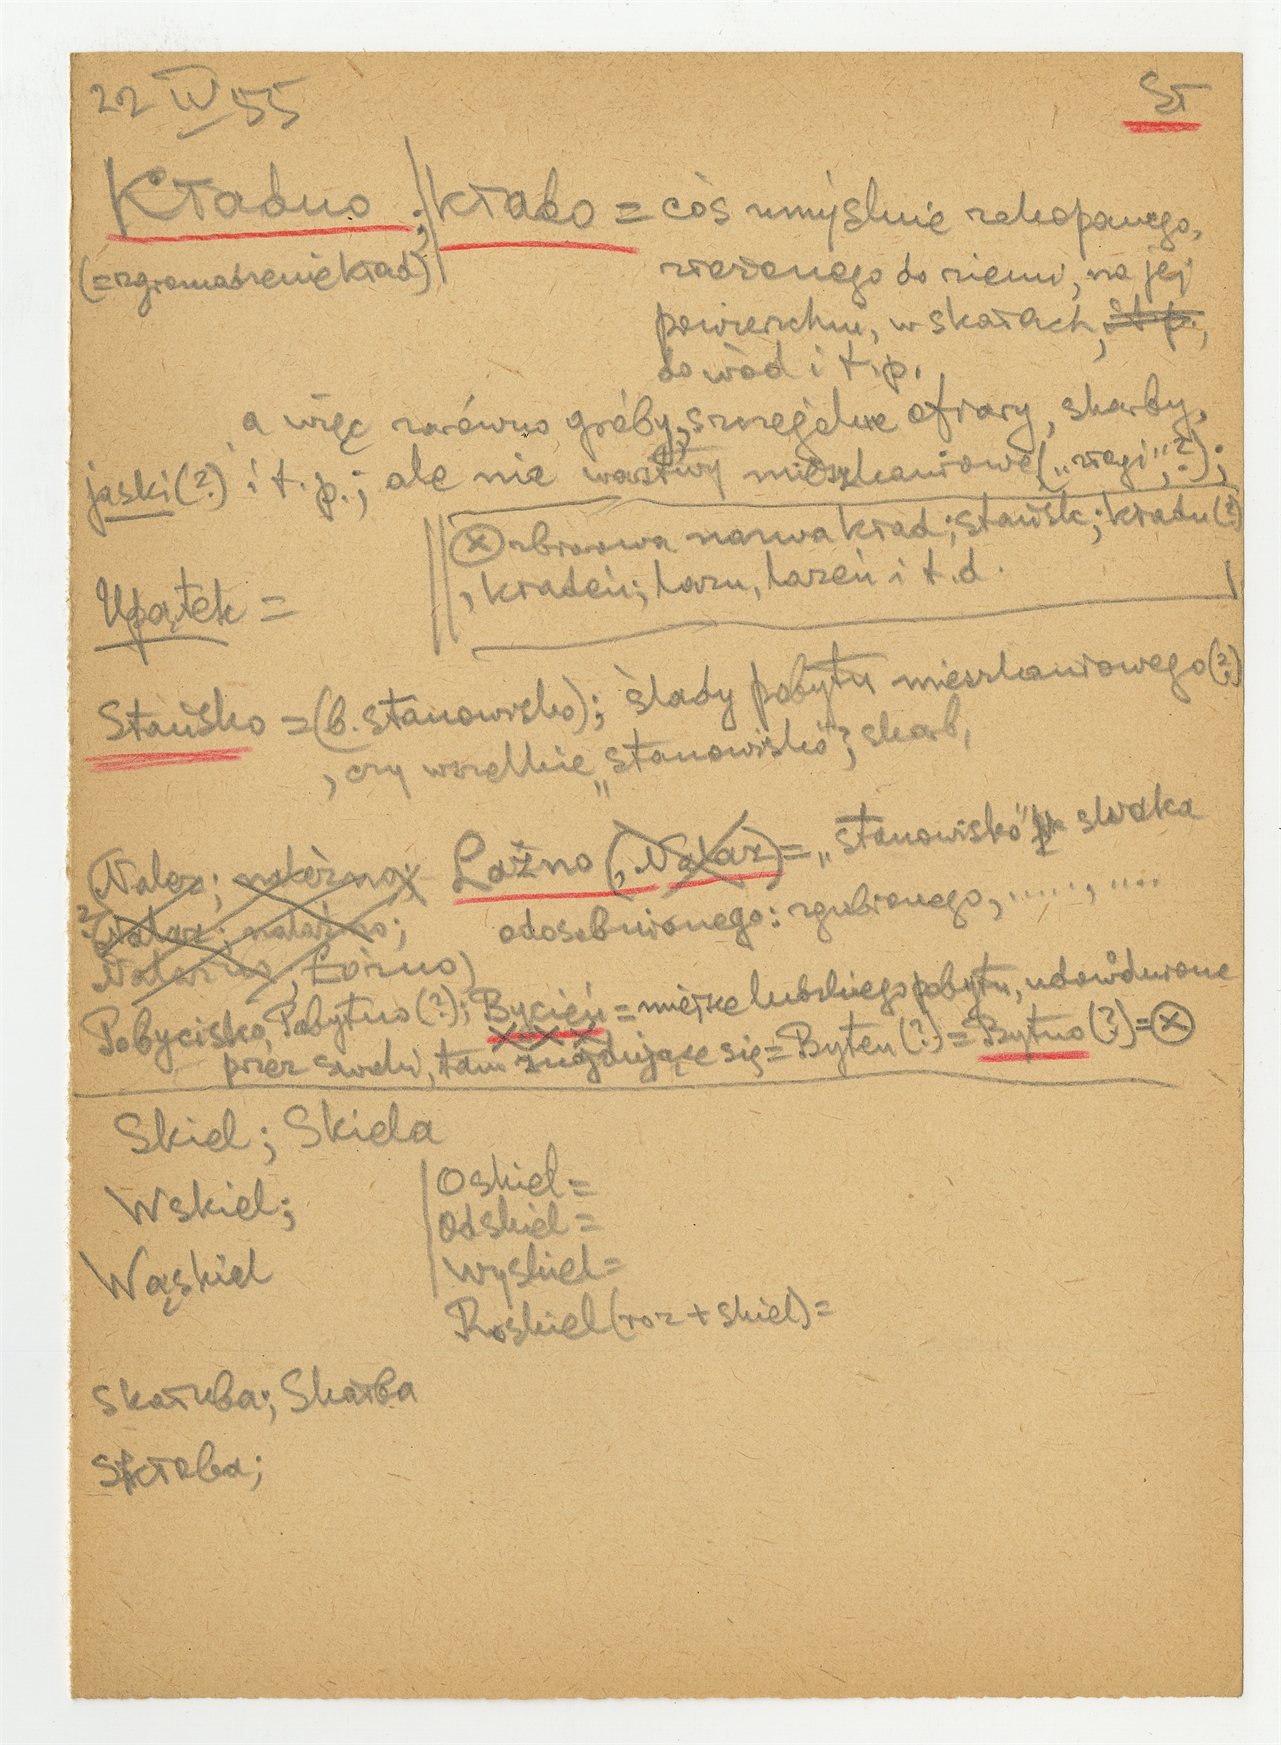 22 IV 55
St
Kładno ; kłado = coś umyślnie zakopanego,
(= zgromadzenie kład)
złożonego do ziemi, na jej
powierzchni, w skałach, i t. p.,
do wód i t. p.
a więc zarówno groby, szczególne ofiary, skarby,
jaski (?) i t. p.; ale nie warstwy mieszkaniowe („złogi”, ?);
ⓧ zbiorowa nazwa kład; stańsk; kładu (?)
, kładeń; łazu, łazeń i t. d.
Upątek =
Stańsko = (b. stanowisko); ślady pobytu mieszkaniowego (?)
, czy wszelkie „stanowisko”; skarb,
(Nalez; nalezno; Łaźno (, Nalaz) = „stanowisko” słudka
odosobnionego: zgubionego, ......, ....
? Nalaz; nalaźno;
Nalazno, Łoźno)
Pobycisko, Pobytno (?); Bycień = miejsce ludzkiego pobytu, udowodnione
przez znaleź., tam znajdujące się = Byteń (?) = Bytno (?) = ⓧ
Skiel; Skiela
Wskiel;
Oskiel =
Odskiel =
Wąskiel
Wyskiel =
Roskiel (roz + skiel) =
Skałuba; Skałba
Skłuba;